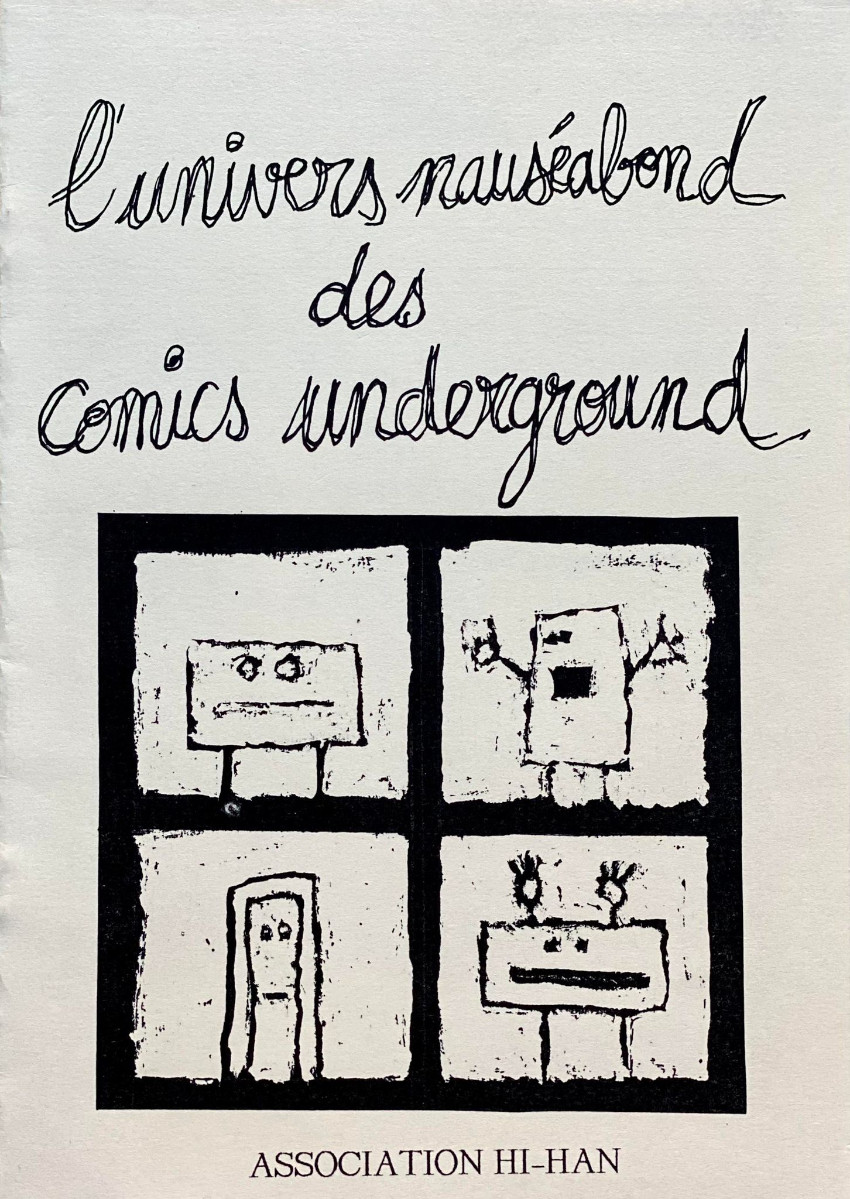 l'univers nauséabond
des
comics underground
ASSOCIATION HI-HAN